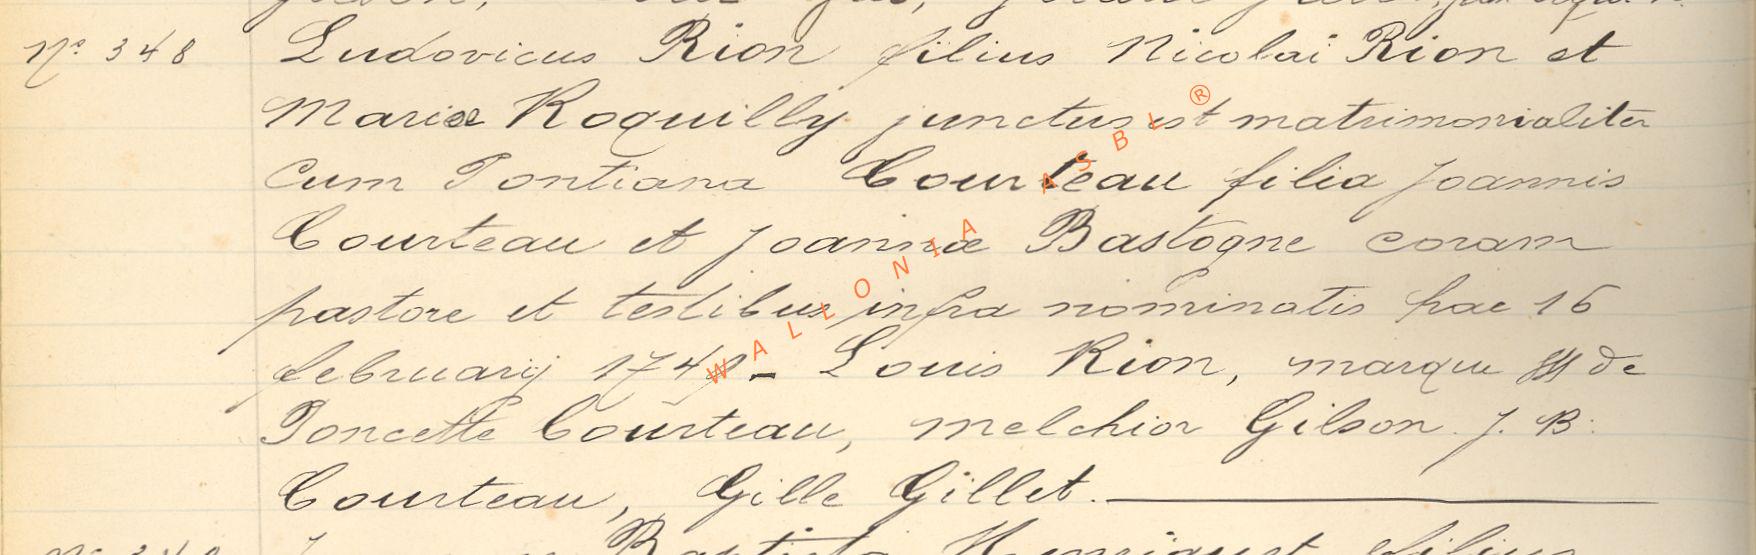 Nº 348 Ludovicus Rion filius Nicolaï Rion et
Mariæ Roquilly junctus est matrimonialiter
cum Pontiana Courteau filia Joannis
Courteau et Joannæ Bastogne coram
pastore et testibus infra nominatis hac 16
februarij 174 _ Louis Rion, marque de
Poncette Courteau, Melchior Gilson. J. B.
Courteau, Gille Gillet.
WALLONIA ASBL ®